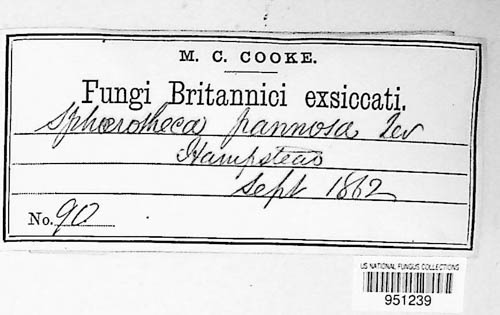 M. C. COOKE.
Fungi Britannici exsiccati.
Sphærotheca pannosa Lev
Hampstead
Sept 1862
No. 90
US NATIONAL FUNGUS COLLECTIONS
951239